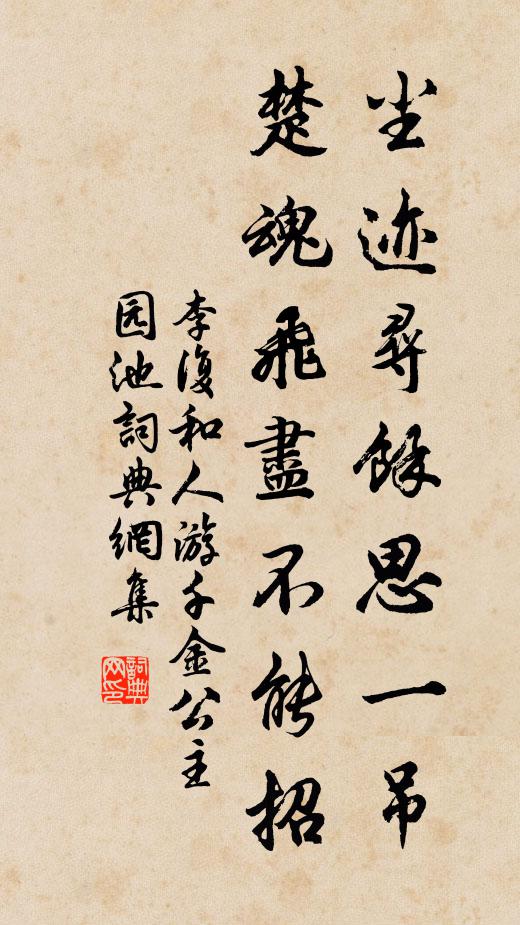 尘迹尋餘思一吊
楚魂飛盡不能招
李復和人游千金公主
园池詞典網集
詞典
网印